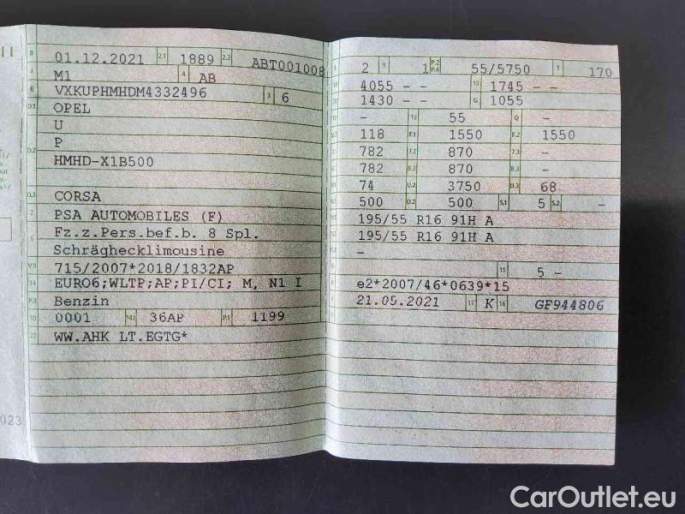 B 01.12.2021 2.1 1889 2.2 ABT001008
J M1 4 AB
E VXKUPHMHDM4332496 3 6
D.1 OPEL
U
D.2 P
HMHD-X1B500
D.3 CORSA
2 PSA AUTOMOBILES (F)
5 Fz.z.Pers.bef.b. 8 Spl.
Schräghecklimousine
V.9 715/2007*2018/1832AP
14 EURO6;WLTP;AP;PI/CI; M, N1 I
P.3 Benzin
10 0001 14.1 36AP P.1 1199
22 WW.AHK LT.EGTG*
023
2 1 55/5750 T 170
4055 - - 1745 - -
1430 - - 1055
- 55 -
118 1550 1550
782 870 -
782 870 -
74 3750 68
500 500 S.1 5 S.2 -
195/55 R16 91H A
195/55 R16 91H A
-
5 -
e2*2007/46*0639*15
21.05.2021 17 K 16 GF944806
CarOutlet.eu